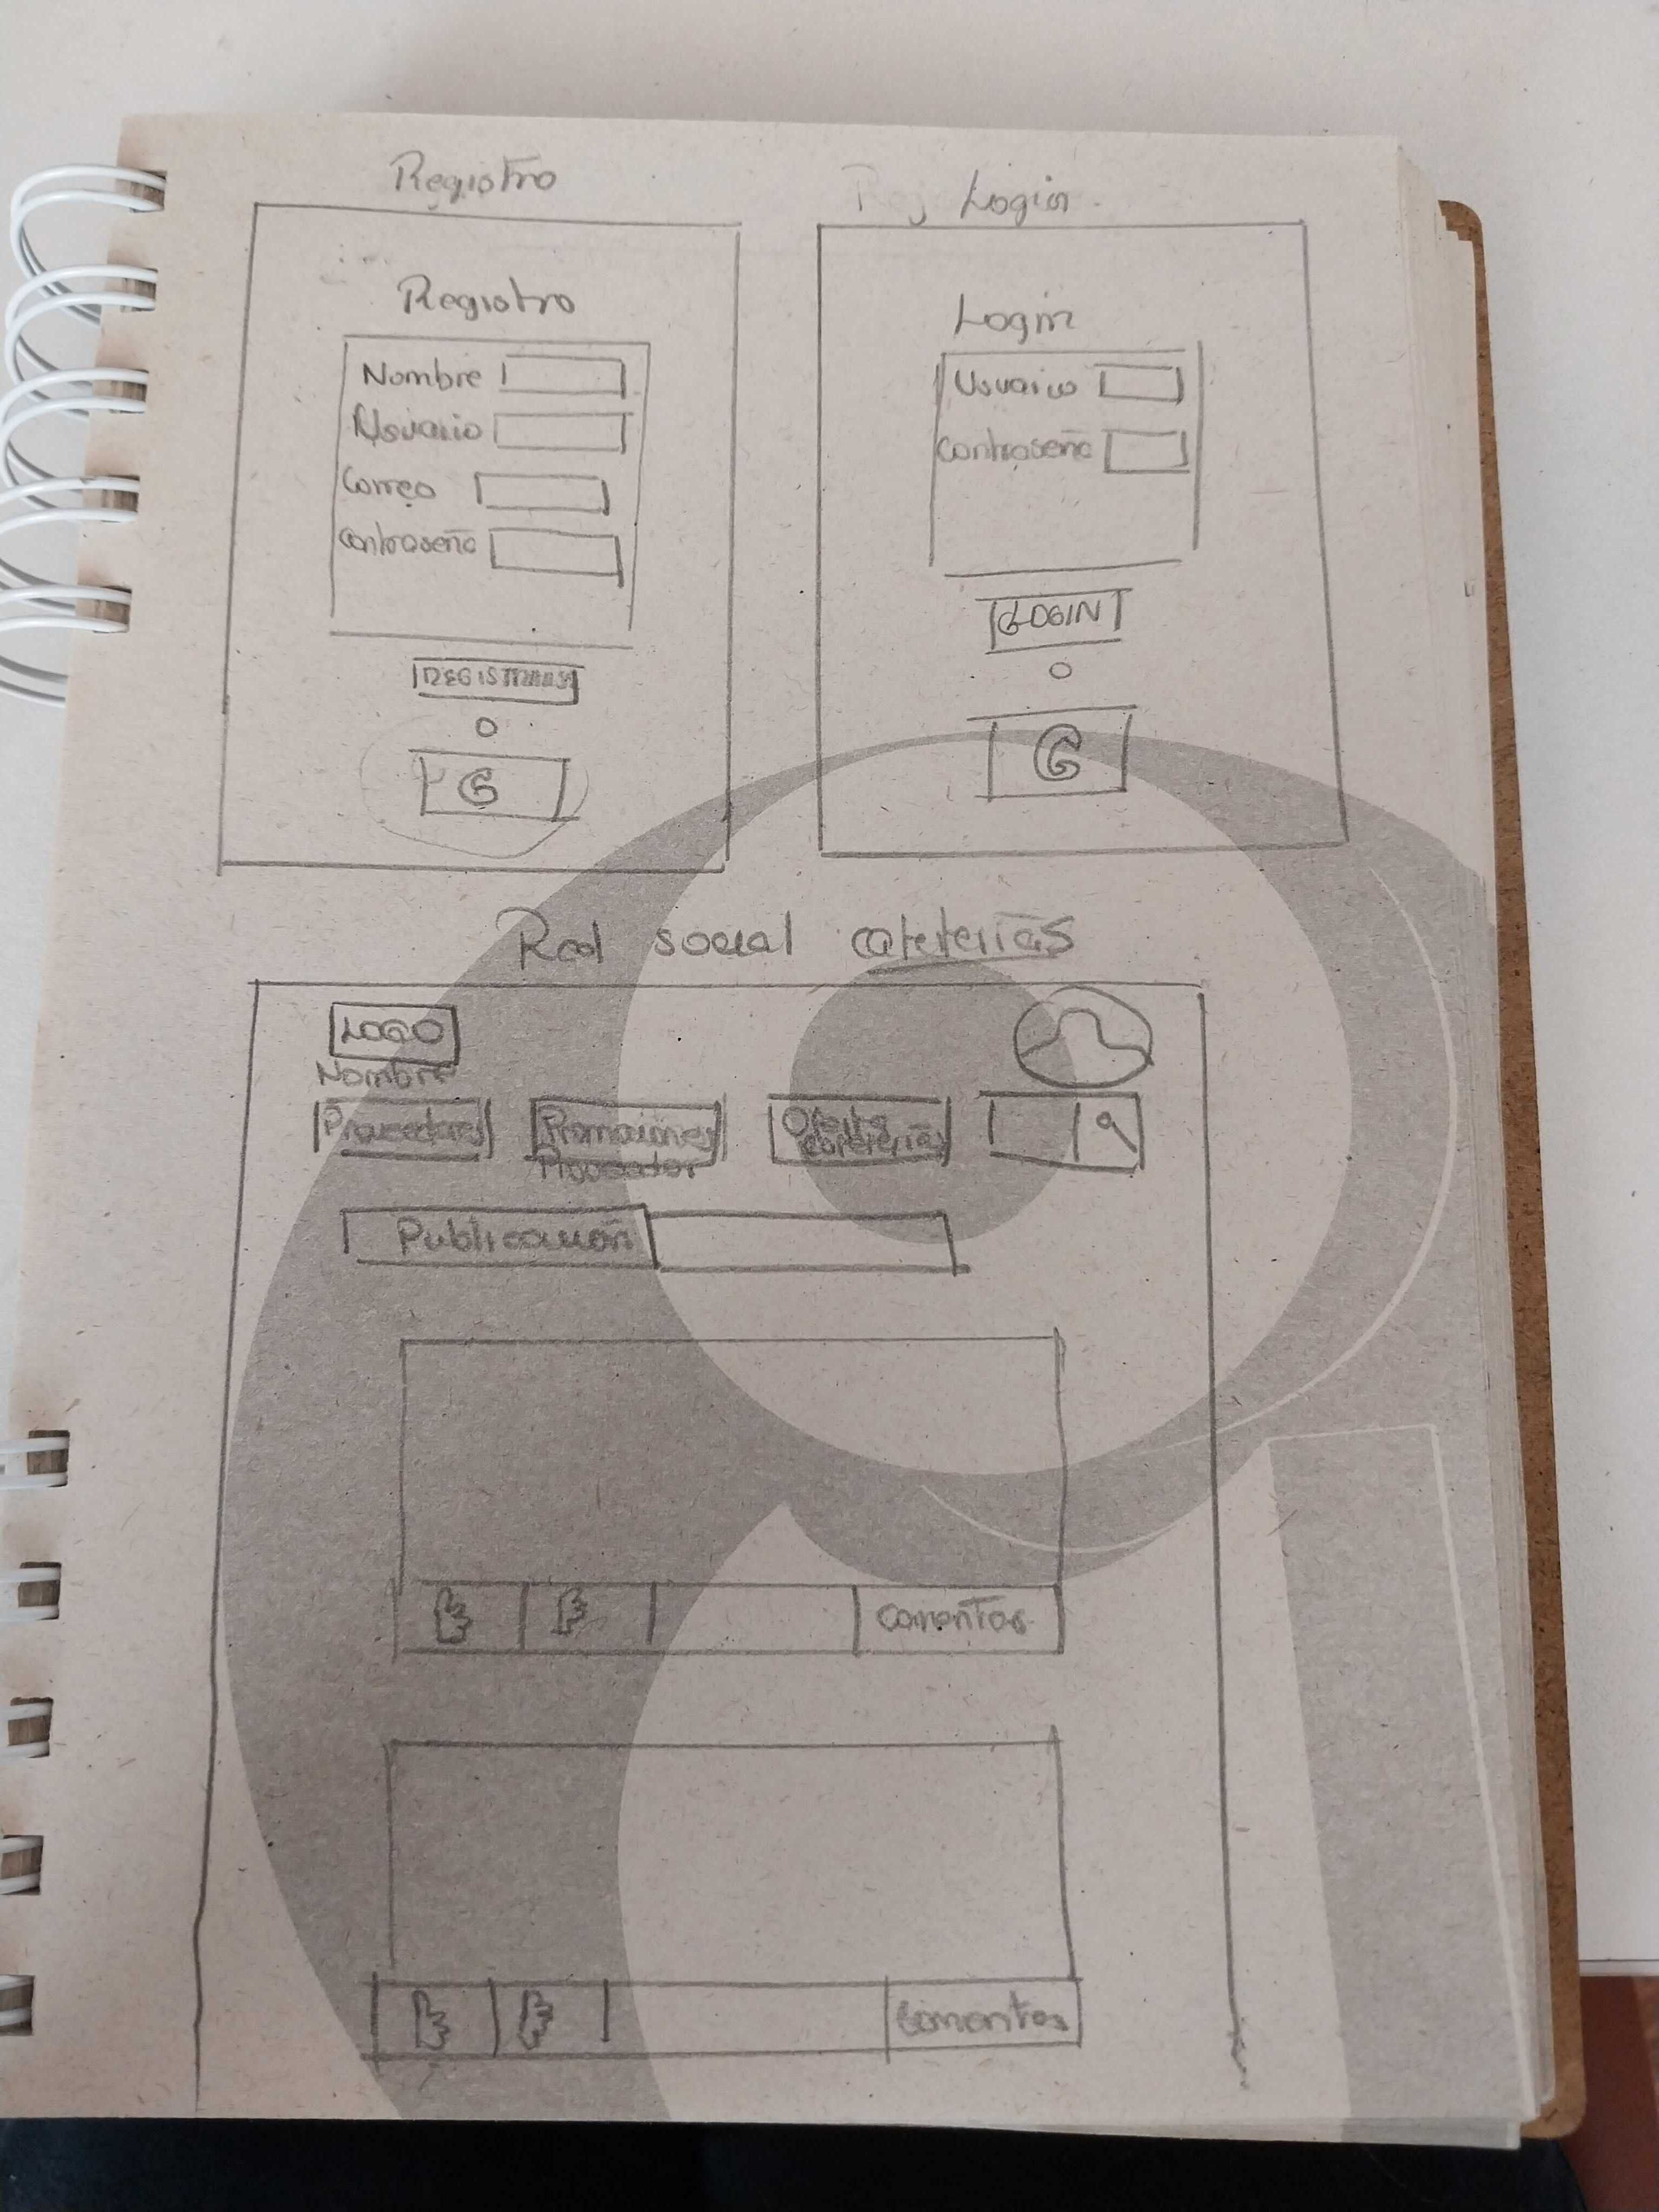 Registro
Registro
Nombre
Usuario
Correo
Contraseña
REGISTRARSE
O
G
Login
Login
Usuario
Contraseña
LOGIN
O
G
Red social cafeterias
LOGO
Nombre
Proveedores
Promociones
Proveedor
Oferta
cafeterias
Publicación
Comentar
Comentar